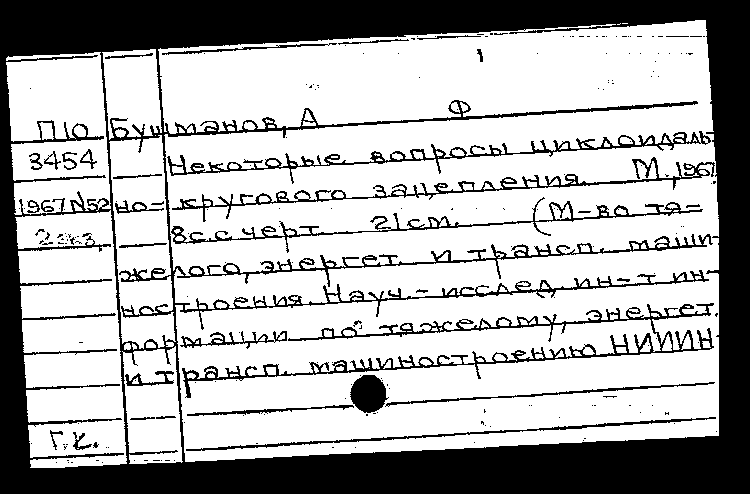 П10 Бушманов, А Ф
3454 Некоторые вопросы циклоидаль-
1967 N52 но-кругового зацепления. М., 1967
2 экз. 8с.с черт. 21см. (М-во тя-
желого, энергет. и трансп. маши-
ностроения. Науч.-исслед. ин-т ин-
формации по тяжелому, энергет.
и трансп. машиностроению НИИИН-
Г.К.